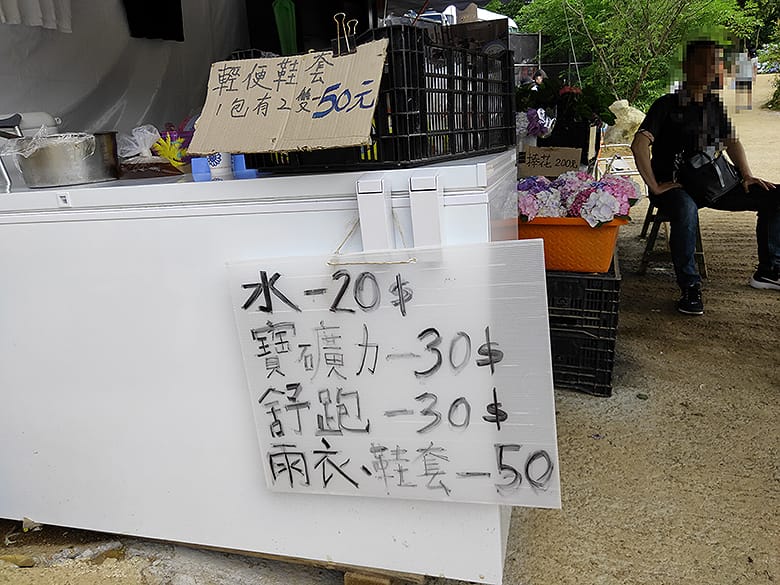 輕便鞋套
1包有2雙50元
捧花200元
水-20$
寶礦力-30$
舒跑-30$
雨衣、鞋套-50